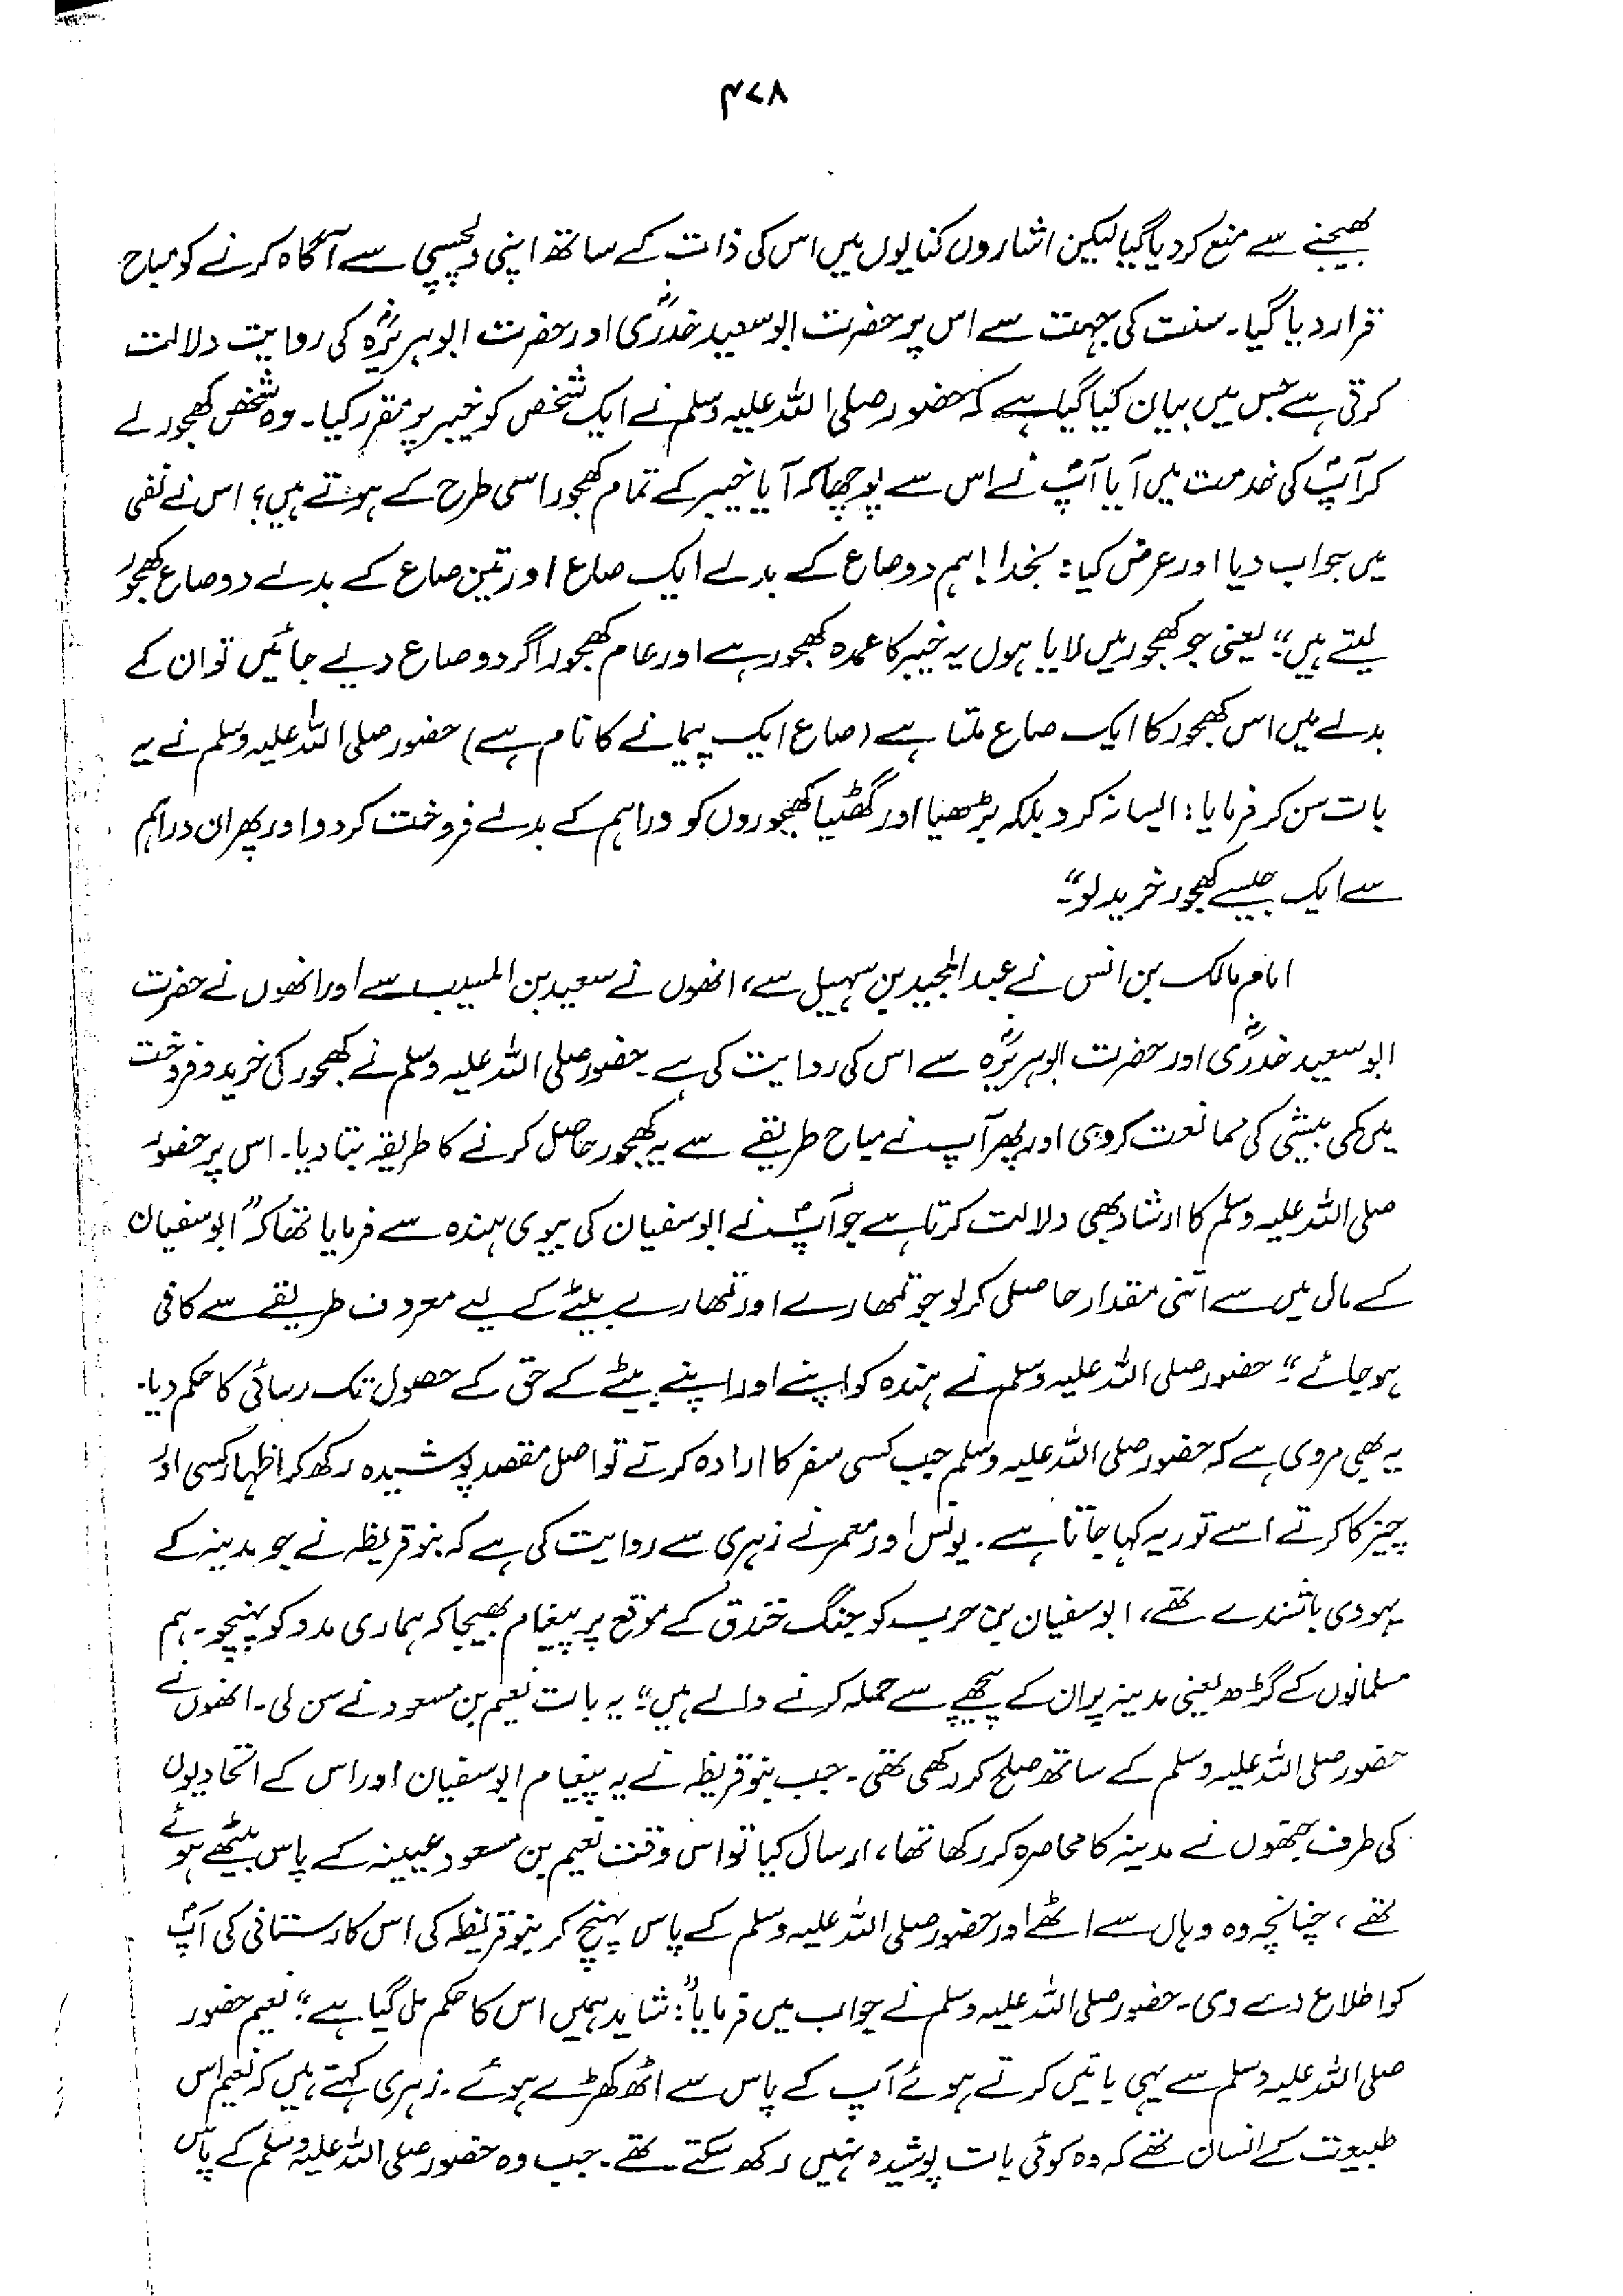 ۴۷۸
بھیجنے سے منع کردیا گیا لیکن اشاروں کنایوں میں اس کی ذات کے ساتھ اپنی دلچسپی سے آگاہ کرنے کو مباح
قرار دیا گیا۔ سنت کی جہت سے اس پر حضرت ابو سعید خدریؓ اور حضرت ابوہریرہؓ کی روایت دلالت
کرتی ہے جس میں بیان کیا گیا ہے کہ حضور صلی اللہ علیہ وسلم نے ایک شخص کو خیبر پر مقرر کیا۔ وہ شخص کھجور لے
کر آپؐ کی خدمت میں آیا آپؐ نے اس سے پوچھا کہ آیا خیبر کے تمام کھجور اسی طرح کے ہوتے ہیں؟ اس نے نفی
میں جواب دیا اور عرض کیا: بخدا! ہم دو صاع کے بدلے ایک صاع اور تین صاع کے بدلے دو صاع کھجور
لیتے ہیں“ یعنی جو کھجور میں لایا ہوں یہ خیبر کا عمدہ کھجور ہے اور عام کھجور اگر دو صاع دیے جائیں تو ان کے
بدلے میں اس کھجور کا ایک صاع ملتا ہے (صاع ایک پیمانے کا نام ہے) حضور صلی اللہ علیہ وسلم نے یہ
بات سن کر فرمایا: ایسا نہ کرو بلکہ بڑھیا اور گھٹیا کھجوروں کو دراہم کے بدلے فروخت کردو اور پھر ان دراہم
سے ایک جیسے کھجور خرید لو“۔
امام مالک بن انس نے عبدالمجید بن سہیل سے، انھوں نے سعید بن المسیب سے اور انھوں نے حضرت
ابو سعید خدریؓ اور حضرت ابوہریرہؓ سے اس کی روایت کی ہے۔ حضور صلی اللہ علیہ وسلم نے کھجور کی خرید و فروخت
میں کمی بیشی کی ممانعت کردی اور پھر آپ نے مباح طریقے سے یہ کھجور حاصل کرنے کا طریقہ بتا دیا۔ اس پر حضور
صلی اللہ علیہ وسلم کا ارشاد بھی دلالت کرتا ہے جو آپؐ نے ابوسفیان کی بیوی ہندہ سے فرمایا تھا کہ ”ابوسفیان
کے مال میں سے اتنی مقدار حاصل کرلو جو تمھارے اور تمھارے بیٹے کے لیے معروف طریقے سے کافی
ہوجائے“ حضور صلی اللہ علیہ وسلم نے ہندہ کو اپنے اور اپنے بیٹے کے حق کے حصول تک رسائی کا حکم دیا۔
یہ بھی مروی ہے کہ حضور صلی اللہ علیہ وسلم جب کسی سفر کا ارادہ کرتے تو اصل مقصد پوشیدہ رکھ کر اظہار کسی اور
چیز کا کرتے اسے توریہ کہا جاتا ہے۔ یونس اور معمر نے زہری سے روایت کی ہے کہ بنو قریظہ نے جو مدینہ کے
یہودی باشندے تھے، ابوسفیان بن حرب کو جنگ خندق کے موقع پر پیغام بھیجا کہ ہماری مدد کو پہنچو۔ ہم
مسلمانوں کے گڑھ یعنی مدینہ پر ان کے پیچھے سے حملہ کرنے والے ہیں“ یہ بات نعیم بن مسعود نے سن لی۔ انھوں نے
حضور صلی اللہ علیہ وسلم کے ساتھ صلح کر رکھی تھی۔ جب بنو قریظہ نے یہ پیغام ابوسفیان اور اس کے اتحادیوں
کی طرف جنھوں نے مدینہ کا محاصرہ کر رکھا تھا، ارسال کیا تو اس وقت نعیم بن مسعود عیینہ کے پاس بیٹھے ہوئے
تھے، چنانچہ وہ وہاں سے اٹھے اور حضور صلی اللہ علیہ وسلم کے پاس پہنچ کر بنو قریظہ کی اس کارستانی کی آپؐ
کو اطلاع دے دی۔ حضور صلی اللہ علیہ وسلم نے جواب میں فرمایا: ”شاید ہمیں اس کا حکم مل گیا ہے“ نعیم حضور
صلی اللہ علیہ وسلم سے یہی باتیں کرتے ہوئے آپ کے پاس سے اٹھ کھڑے ہوئے۔ زہری کہتے ہیں کہ نعیم اس
طبیعت کے انسان تھے کہ وہ کوئی بات پوشیدہ نہیں رکھ سکتے تھے۔ جب وہ حضور صلی اللہ علیہ وسلم کے پاس